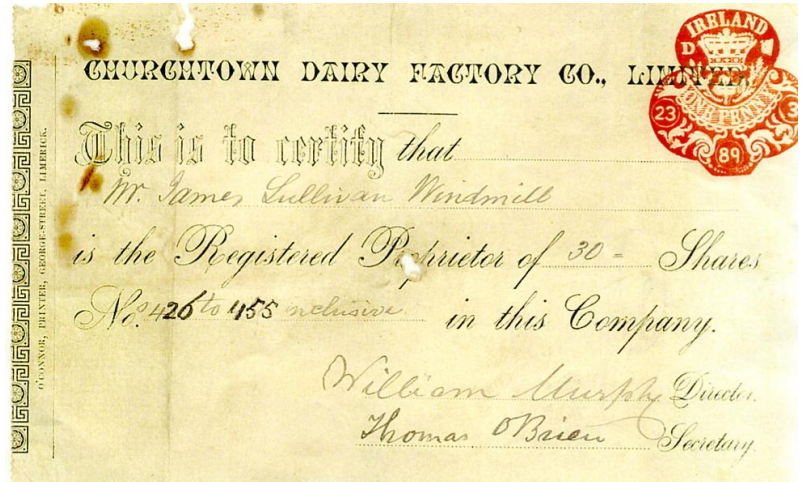 CHURCHTOWN DAIRY FACTORY CO., LIMITED.
This is to certify that
Mr. James Sullivan Windmill
is the Registered Proprietor of 30 = Shares
Nos. 426 to 455 inclusive in this Company.
William Murphy Director.
Thomas O'Brien Secretary.
O'CONNOR, PRINTER, GEORGE-STREET, LIMERICK.
IRELAND
D
ONE PENNY
23 3
89